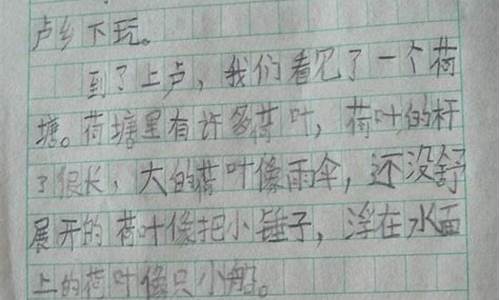 卢乡下玩。
到了上卢，我们看见了一个荷
塘。荷塘里有许多荷叶，荷叶的杆
了很长，大的荷叶像雨伞，还没舒
展开的荷叶像把小锤子，浮在水面
上的荷叶像只小船。